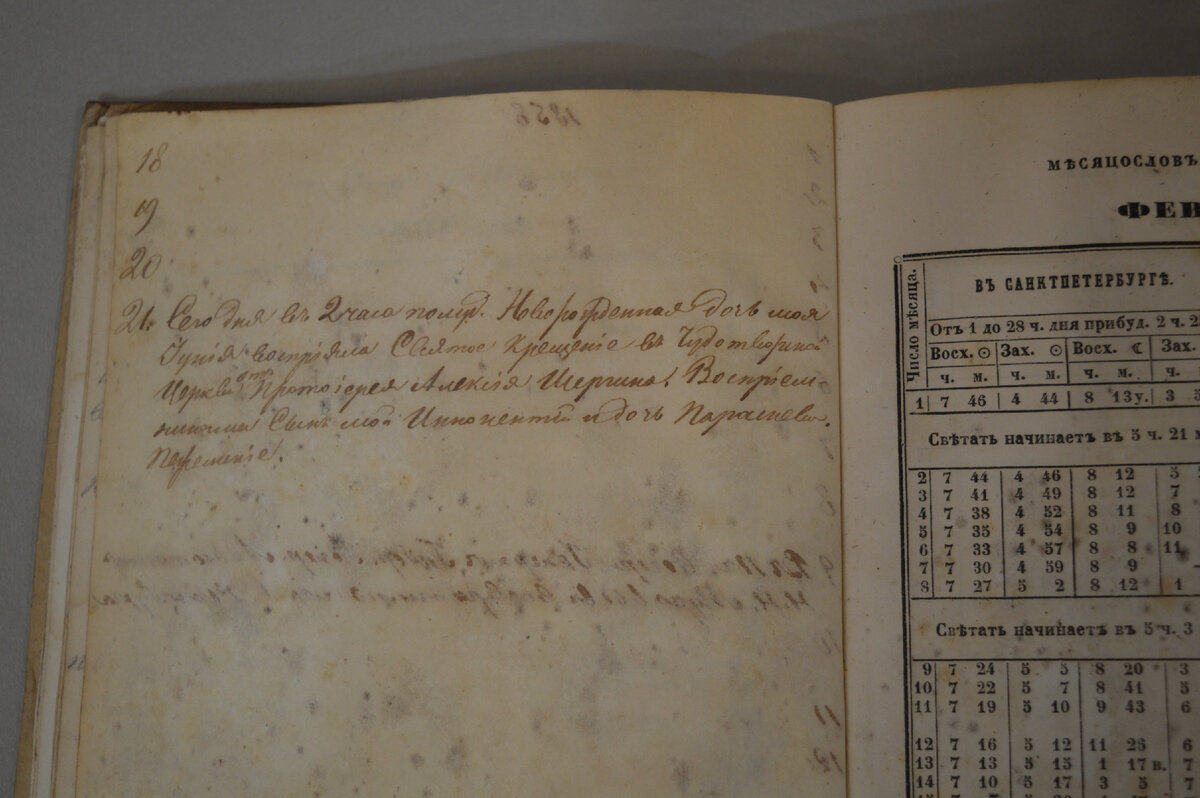 1858
18
19
20
21. Сегодня въ 2 часа полуд. Новорожденная дочь моя
Іунія воспріяла Святое Крещеніе въ Чудотворной
Церкви Протоіерея Алексія Шергина. Воспріем-
никами Сынъ мой Иннокентій и дочь Параскева.
МѢСЯЦОСЛОВЪ
ФЕВ
Число мѣсяца.
ВЪ САНКТПЕТЕРБУРГѢ.
Отъ 1 до 28 ч. дня прибуд. 2 ч. 2
Восх. ☉ Зах. ☉ Восх. ☾ Зах.
ч. м. ч. м. ч. м. ч.
1 7 46 4 44 8 13у. 3 5
Свѣтать начинаетъ въ 5 ч. 21 м
2 7 44 4 46 8 12 5
3 7 41 4 49 8 12 7
4 7 38 4 52 8 11 8
5 7 35 4 54 8 9 10
6 7 33 4 57 8 8 11
7 7 30 4 59 8 9 —
8 7 27 5 2 8 12 1
Свѣтать начинаетъ въ 5 ч. 3
9 7 24 5 5 8 20 3
10 7 22 5 7 8 41 5
11 7 19 5 10 9 43 6
12 7 16 5 12 11 26 6
13 7 13 5 15 1 17в. 7
14 7 10 5 17 3 5 7